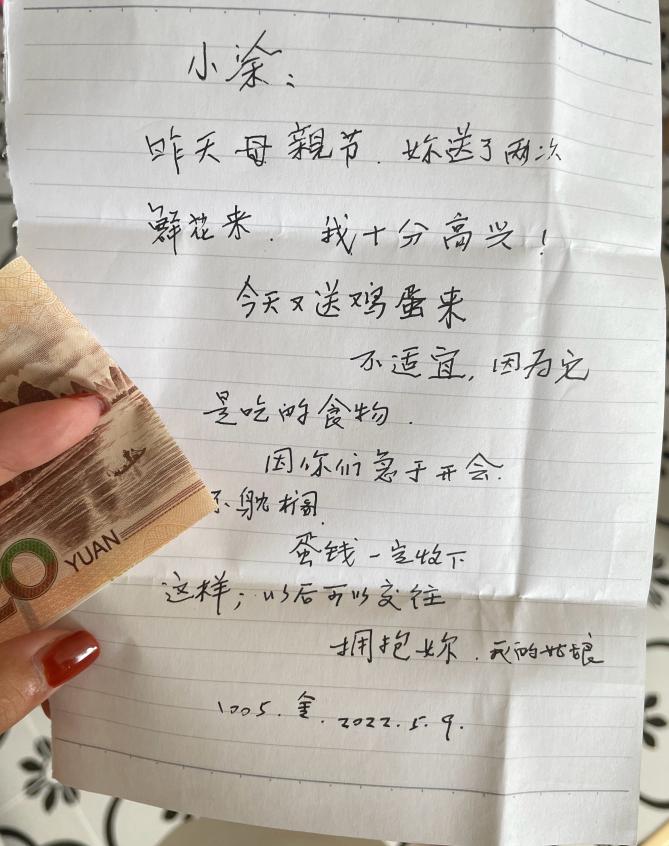 小涂：
昨天母親节.妳送了两次
鲜花来.我十分高兴!
今天又送鸡蛋来
不适宜,因为它
是吃的食物.
因你们急于开会.
蛋钱一定收下
这样;以后可以交往
拥抱妳.我的姑娘
1005.金.2022.5.9.
YUAN